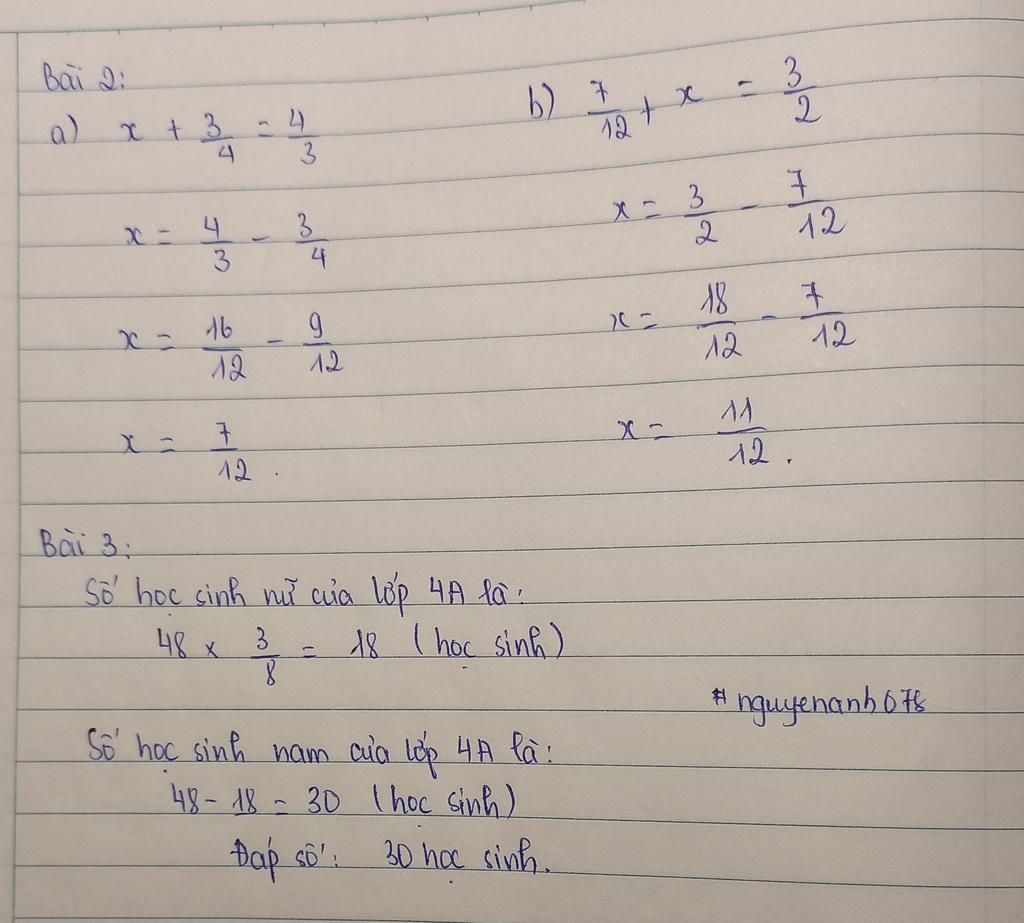 Bài 2:
a) x + 3/4 = 4/3
x = 4/3 - 3/4
x = 16/12 - 9/12
x = 7/12.
b) 7/12 + x = 3/2
x = 3/2 - 7/12
x = 18/12 - 7/12
x = 11/12.
Bài 3:
Số học sinh nữ của lớp 4A là:
48 x 3/8 = 18 (học sinh)
#nguyenanh078
Số học sinh nam của lớp 4A là:
48 - 18 = 30 (học sinh)
Đáp số: 30 học sinh.